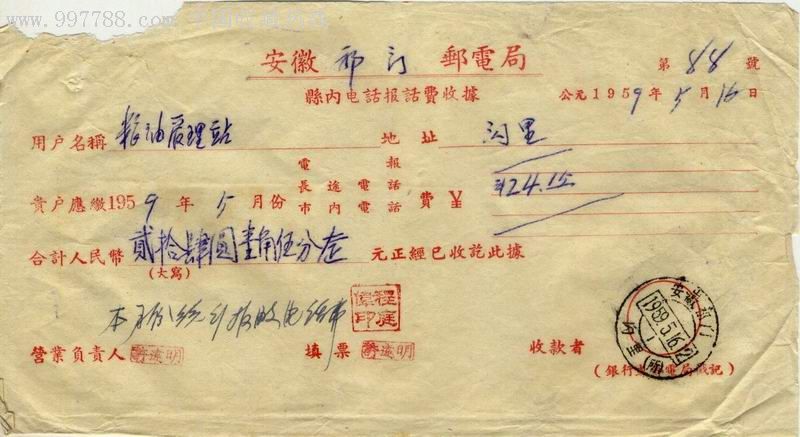 www.997788.com 中国收藏热线
安徽 祁门 郵電局 第 88 號
縣内电話报話費收據 公元1959年5月16日
用户名稱 粮油管理站 地址 闪里
電報
貴户應繳1959年5月份 長途電話 費 ¥ 24.15
市内電話
合計人民幣 貳拾肆圓壹角伍分 元正經已收訖此據
(大寫)
本
程庭
印
營業負責人 明 填票 明 收款者
(銀行或郵電局戳記)
安徽祁门
1959.5.16